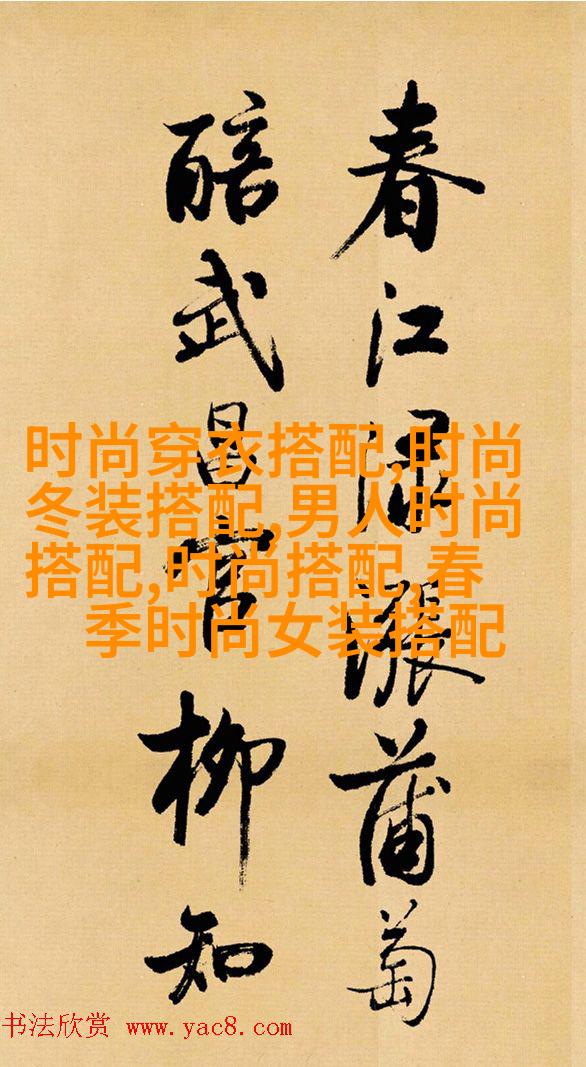 春江渌漲蒲萄
醅武昌官柳知
时尚穿衣搭配,时尚
冬装搭配,男人时尚
搭配,时尚搭配,春
季时尚女装搭配
书法欣赏 www.yac8.com